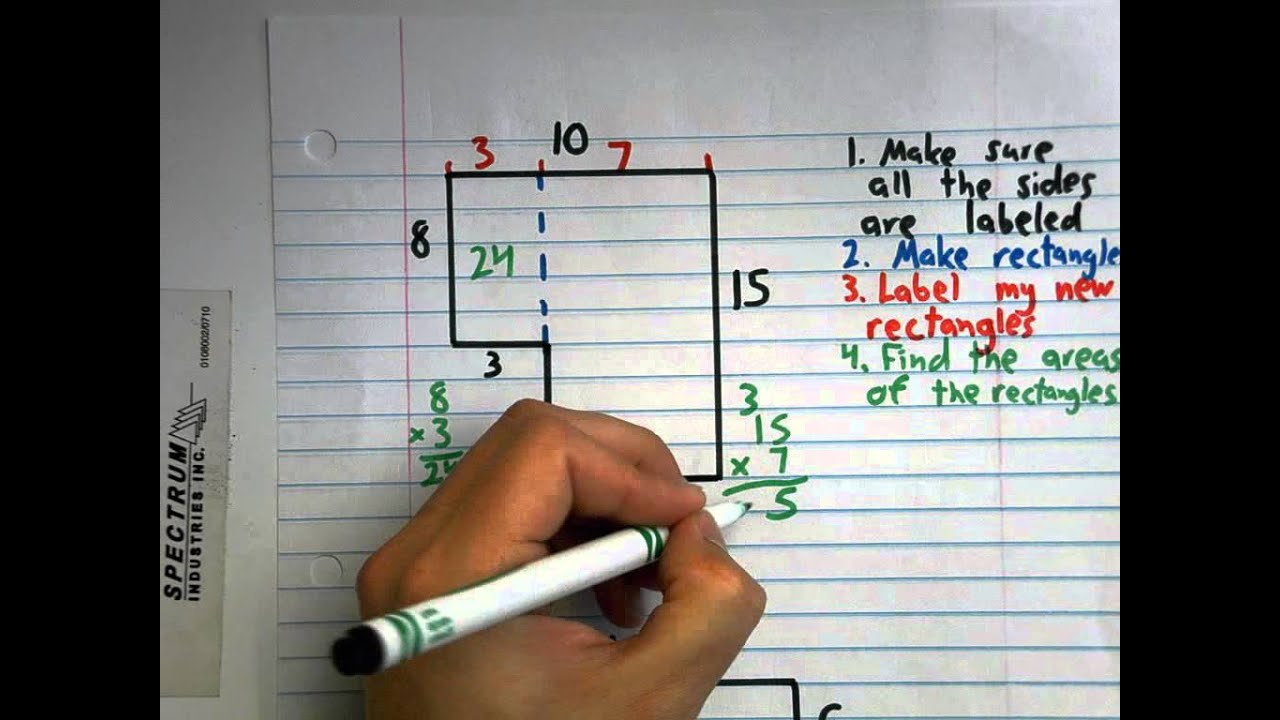 10
3
7
8
24
15
3
8
× 3
3
15
× 7
5
1. Make sure
all the sides
are labeled
2. Make rectangle
3. Label my new
rectangles
4. Find the areas
of the rectangles
SPECTRUM
INDUSTRIES INC.
0108002/0710